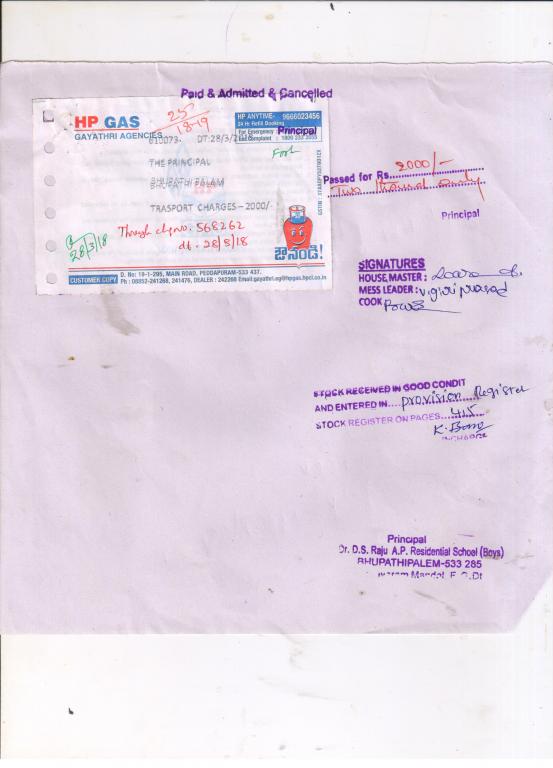 Paid & Admitted & Cancelled
HP GAS
GAYATHRI AGENCIES
25
18-19
HP ANYTIME- 9666023456
24 Hr Refill Booking
For Emergency
Principal
610073- DT:28/3/2018
THE PRINCIPAL
BHUPATHI PALAM
TRASPORT CHARGES-2000/-
Through chq no. 568262
dt. 28/3/18
28/3/18
ఔనండి!
CUSTOMER COPY
D. No: 19-1-295, MAIN ROAD, PEDDAPURAM-533 437.
Ph : 08852-241268, 241476, DEALER : 242268 Email:gayathri.ag@hpgas.hpcl.co.in
Passed for Rs. 2000/-
Two thousand only
Principal
SIGNATURES
HOUSE, MASTER :
MESS LEADER : v.giri prasad
COOK
STOCK RECEIVED IN GOOD CONDIT
AND ENTERED IN.... provision Register
STOCK REGISTER ON PAGES 415
INCHARGE
Principal
Dr. D.S. Raju A.P. Residential School (Boys)
BHUPATHIPALEM-533 285
Mandal, E.G.Dt